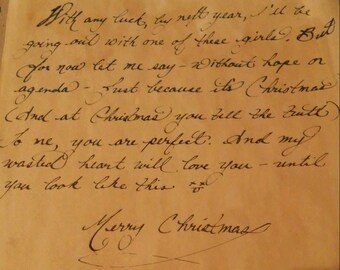 With any luck, by next year, I'll be
going out with one of these girls. But
for now let me say - without hope or
agenda - Just because it's Christmas
(And at Christmas you tell the truth)
to me, you are perfect. And my
wasted heart will love you - until
you look like this
Merry Christmas